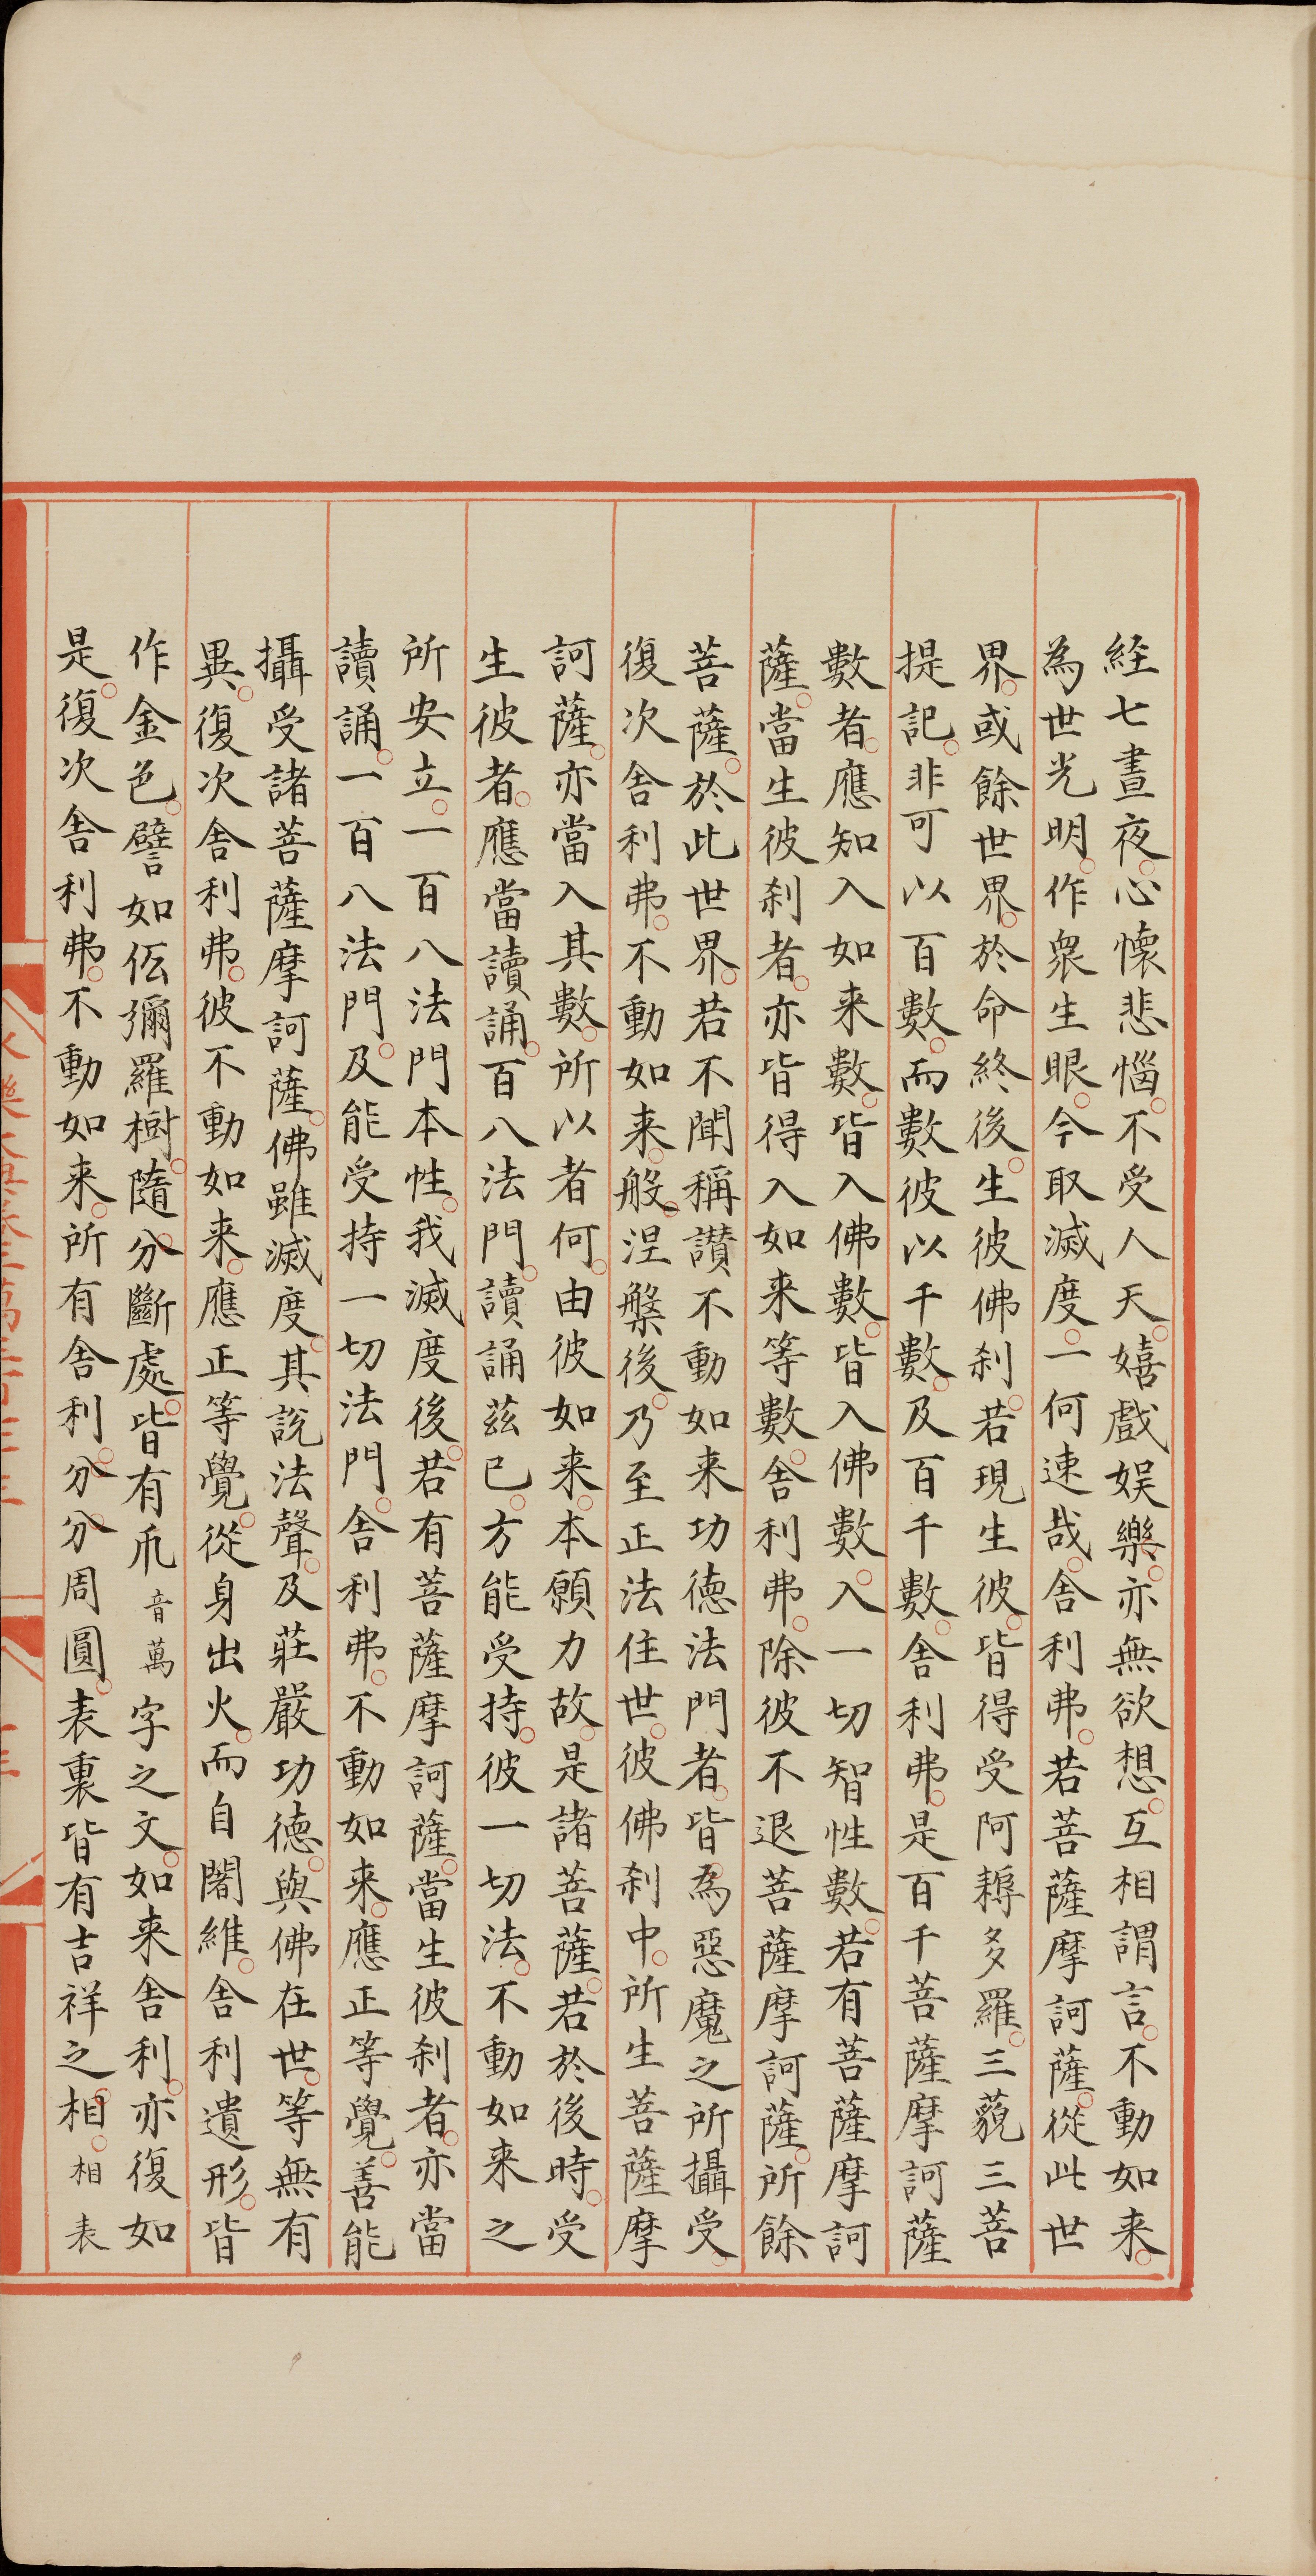 経七晝夜。心懷悲惱。不受人天。嬉戲娱樂。亦無欲想。互相謂言。不動如来。
為世光明。作衆生眼。今取滅度。一何速哉。舎利弗。若菩薩摩訶薩。從此世
界。或餘世界。於命終後。生彼佛刹。若現生彼。皆得受阿耨多羅。三藐三菩
提記。非可以百數。而數彼以千數。及百千數。舎利弗。是百千菩薩摩訶薩
數者。應知入如来數。皆入佛數。皆入佛數。入一切智性數。若有菩薩摩訶
薩。當生彼刹者。亦皆得入如来等數。舎利弗。除彼不退菩薩摩訶薩。所餘
菩薩。於此世界。若不聞稱讃不動如来功德法門者。皆為惡魔之所攝受。
復次舎利弗。不動如来。般。涅槃後。乃至正法住世。彼佛刹中。所生菩薩摩
訶薩。亦當入其數。所以者何。由彼如来。本願力故。是諸菩薩。若於後時。受
生彼者。應當讀誦。百八法門。讀誦茲已。方能受持。彼一切法。不動如来之
所安立。一百八法門本性。我滅度後。若有菩薩摩訶薩。當生彼刹者。亦當
讀誦。一百八法門。及能受持一切法門。舎利弗。不動如来。應正等覺。善能
攝受諸菩薩摩訶薩。佛雖滅度。其說法聲。及莊嚴功德。與佛在世。等無有
異。復次舎利弗。彼不動如来。應正等覺。從身出火。而自闍維。舎利遺形。皆
作金色。譬如伭彌羅樹。隨分。斷處。皆有卍音萬字之文。如来舎利。亦復如
是。復次舎利弗。不動如来。所有舎利。分。分。周圓。表裏皆有吉祥之相。相表